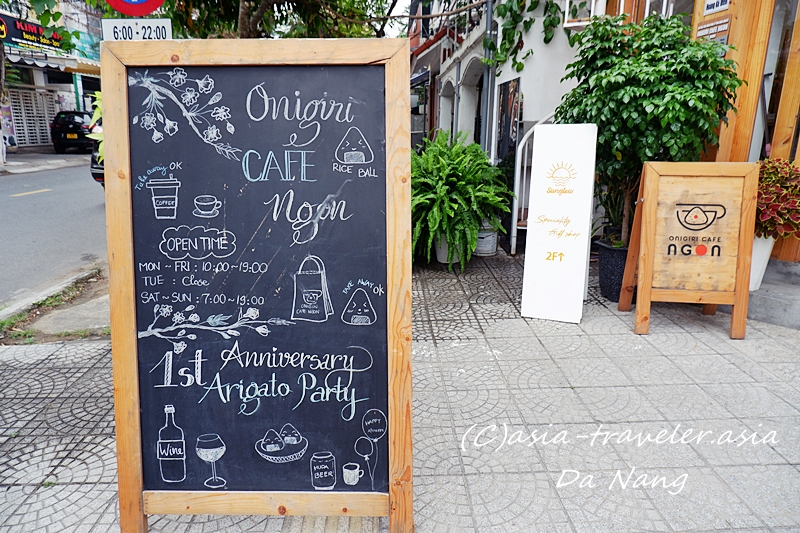 6:00 - 22:00
Onigiri
CAFE
Ngon
RICE BALL
Take away OK
COFFEE
OPEN TIME
MON ~ FRI : 10:00~19:00
TUE : Close
SAT ~ SUN : 7:00~19:00
ONIGIRI
CAFE NGON
TAKE AWAY OK
1st Anniversary
Arigato Party
Wine
BEER
HAPPY
Sunglow
Specialty
2F↑
ONIGIRI CAFE
NGON
(C)asia-traveler.asia
Da Nang